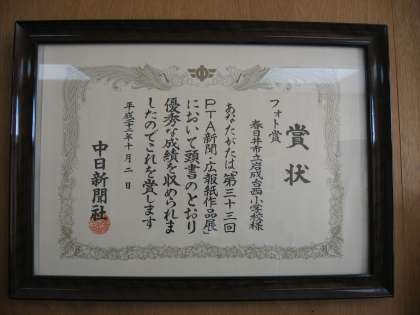 賞状
フォト賞
春日井市立岩成台西小学校様
あなたがたは「第三十三回
PTA新聞・広報紙作品展」
において頭書のとおり
優秀な成績を収められま
したのでこれを賞します
平成二十三年十月二日
中日新聞社